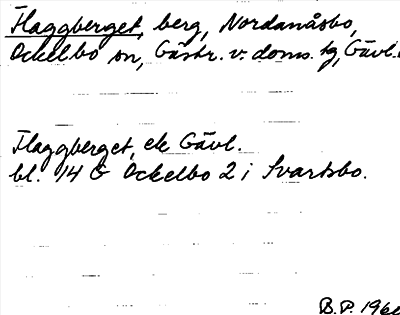 Flaggberget, berg, Nordanåsbo,
Ockelbo sn, Gästr. v. doms. tg, Gävl.
Flaggberget, ek Gävl.
bl. 14 G Ockelbo 2 i Svartsbo.
B.P. 196